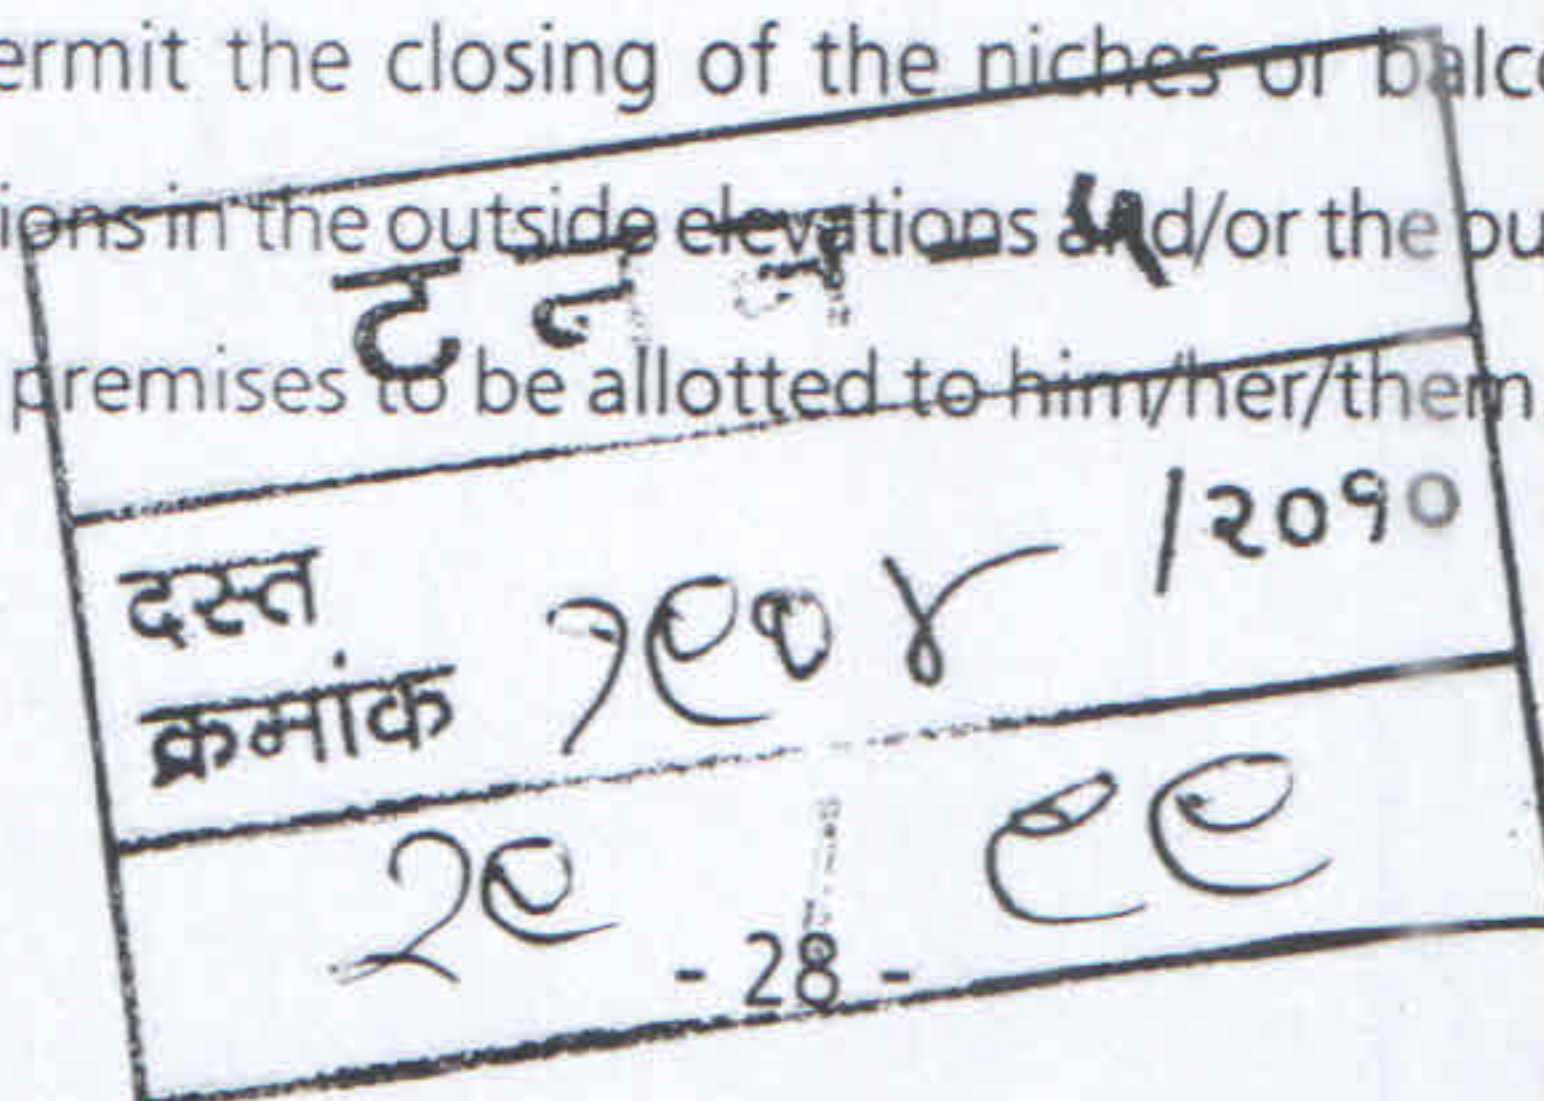 ermit the closing of the niches or balco
ions in the outside elevations and/or the bu
ट न न - ५
premises to be allotted to him/her/them
दस्त
क्रमांक १९०४ /२०१०
२९ ९९
- 28 -